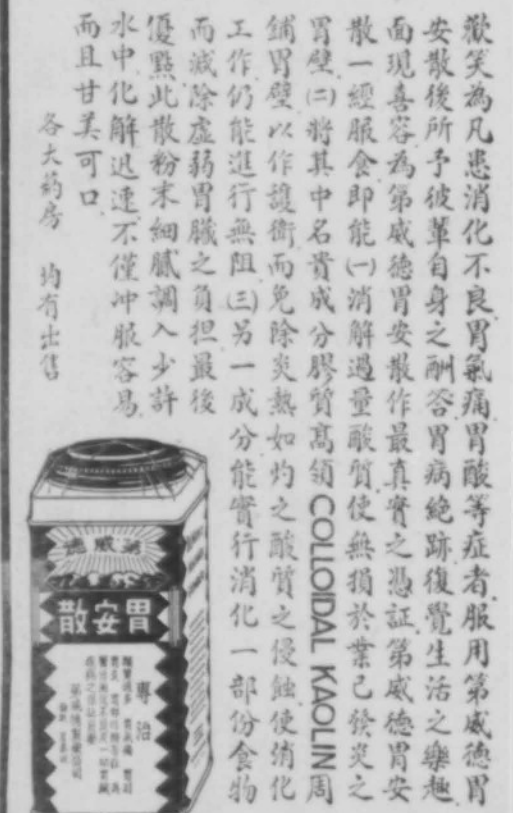 歡笑為凡患消化不良胃氣痛胃酸等症者服用第威德胃
安散後所予彼輩自身之酬答胃病絶跡復覺生活之樂趣
面現喜容為第威德胃安散作最真實之憑証第威德胃安
散一經服食即能㈠消解過量酸質使無損於業已發炎之
胃壁㈡將其中名貴成分膠質高領 COLLOIDAL KAOLIN 周
鋪胃壁以作護衛而免除炎熱如灼之酸質之侵蝕使消化
工作仍能進行無阻㈢另一成分能實行消化一部份食物
而減除虛弱胃臟之負担最後
優點此散粉末細膩調入少許
水中化解迅速不僅冲服容易
而且甘美可口
各大葯房 均有出售
第威德
胃安散
專治